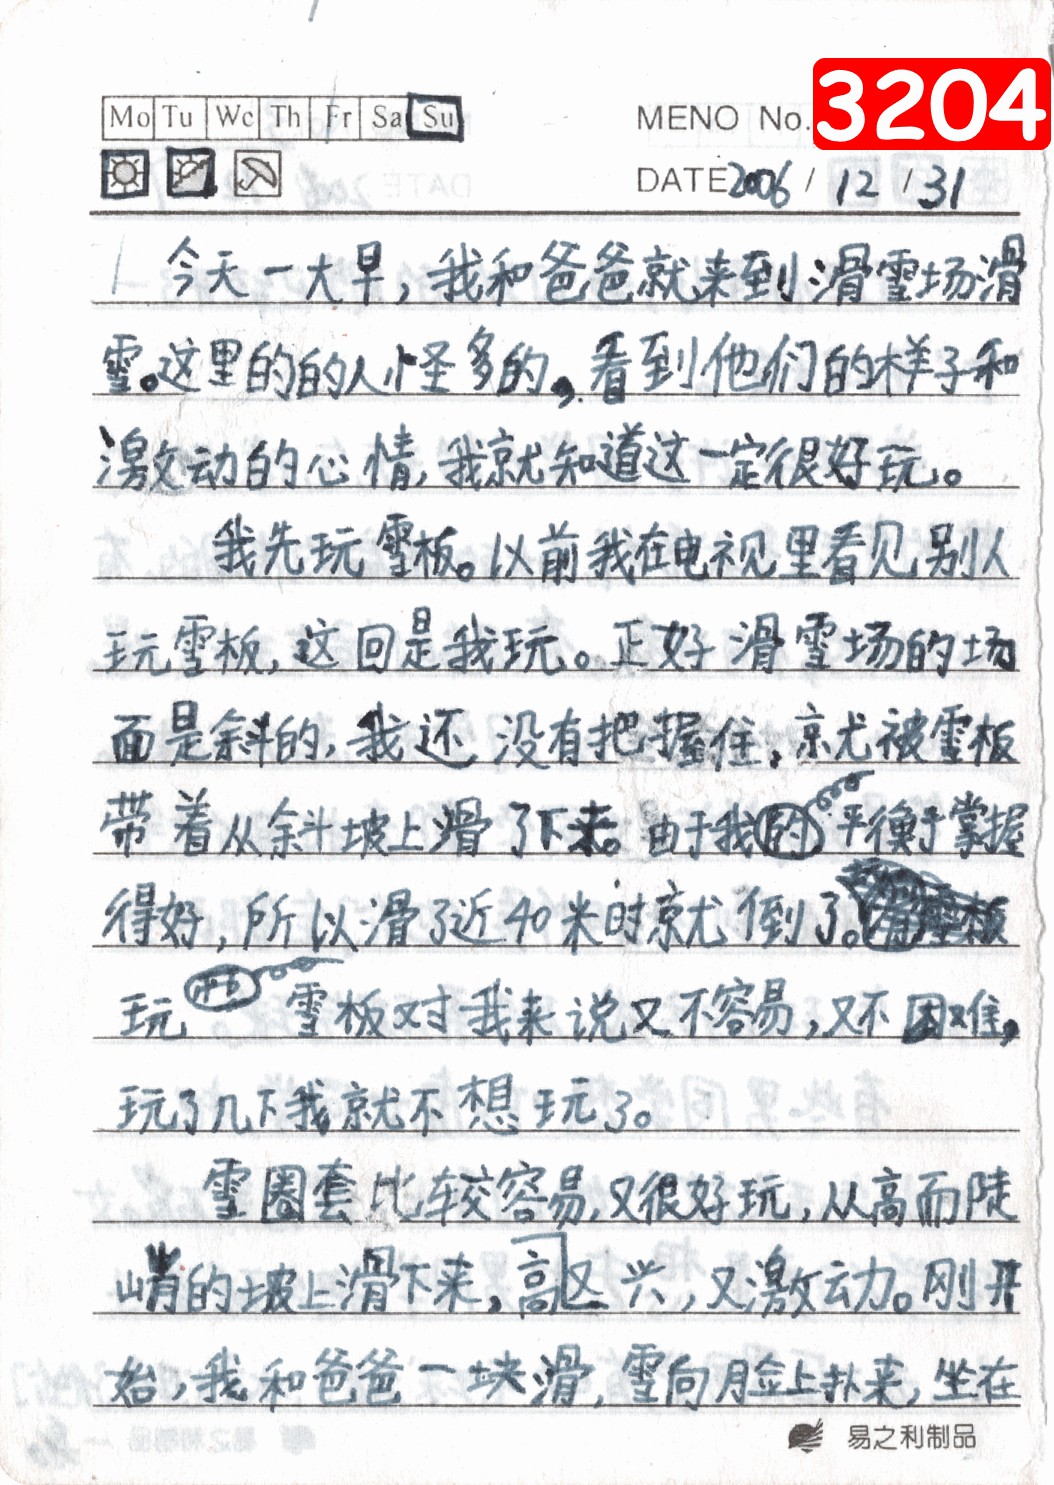 Mo Tu We Th Fr Sa Su
MENO No. 3204
DATE 2006 / 12 / 31
今天一大早，我和爸爸就来到滑雪场滑
雪。这里的的人怪多的，看到他们的样子和
激动的心情，我就知道这一定很好玩。
我先玩雪板。以前我在电视里看见别人
玩雪板，这回是我玩。正好滑雪场的场
面是斜的，我还没有把握住，就被雪板
带着从斜坡上滑了下来。由于我的平衡于掌握
得好，所以滑了近40米时就倒了。
玩雪板对我来说又不容易，又不困难，
玩了几下我就不想玩了。
雪圈套比较容易，又很好玩，从高而陡
峭的坡上滑下来，高又兴，又激动。刚开
始，我和爸爸一块滑，雪向脸上扑来，坐在
易之利制品